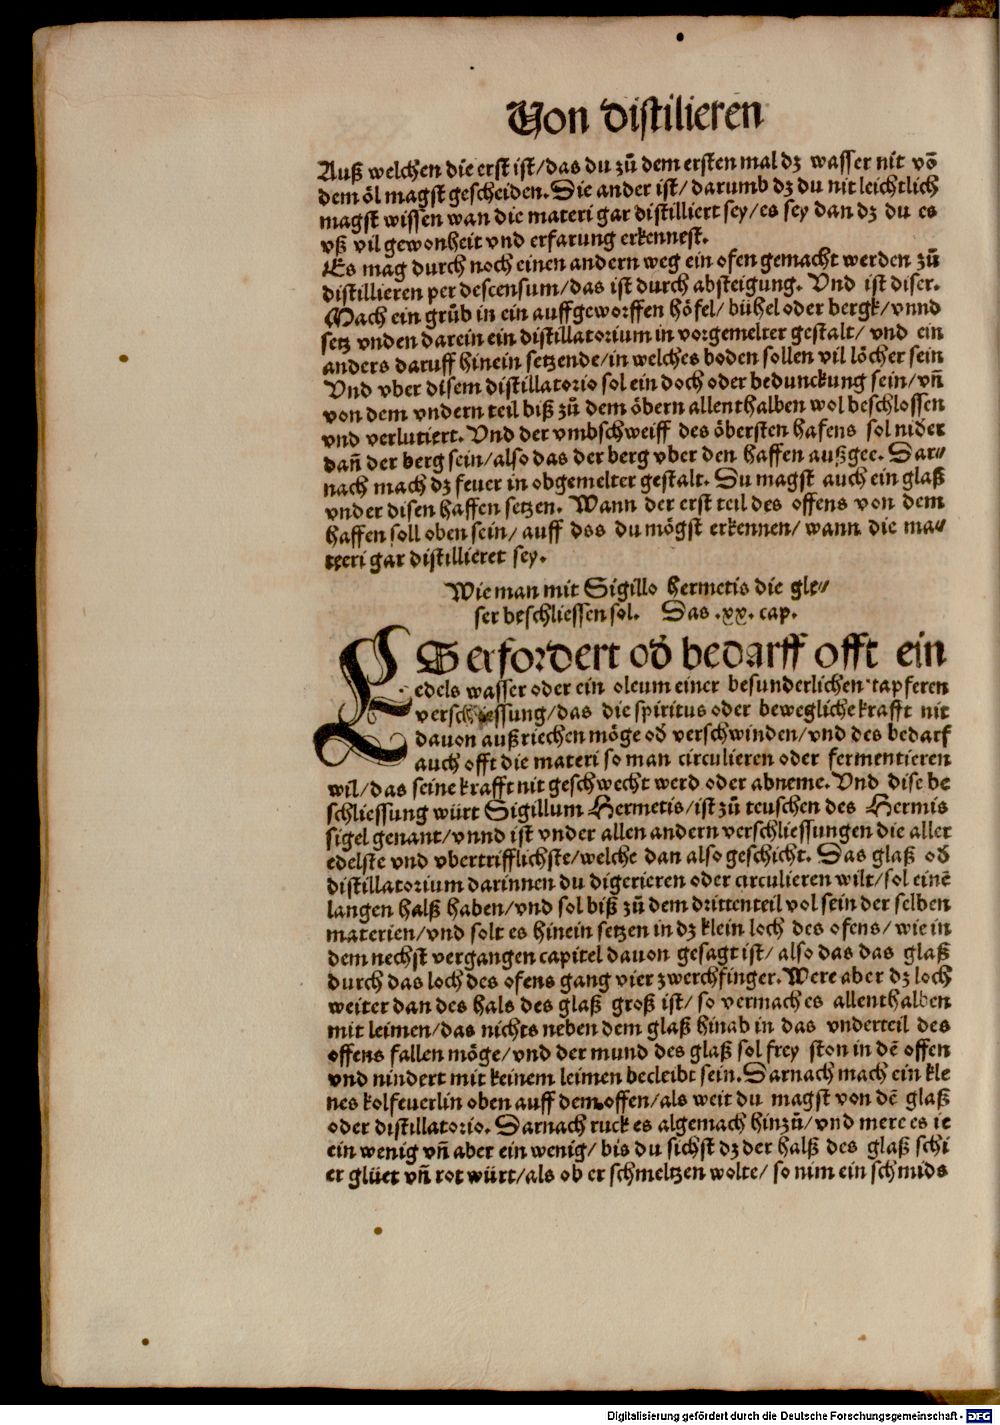 Von distilieren
Auß welchen die erst ist/das du zů dem ersten mal dz wasser nit võ
dem öl magst gescheiden. Die ander ist/ darumb dz du nit leichtlich
magst wissen wan die materi gar distilliert sey/es sey dan dz du es
vß vil gewonheit vnd erfarung erkennest.
Es mag durch noch einen andern weg ein ofen gemacht werden zů
distillieren per descensum/das ist durch absteigung. Vnd ist diser.
Mach ein grůb in ein auffgeworffen höfel/ bühel oder bergk/vnnd
setz vnden darein ein distillatorium in vorgemelter gestalt/ vnd ein
anders daruff hinein setzende/in welches boden sollen vil löcher sein
Vnd vber disem distillatorio sol ein doch oder bedunckung sein/vñ
von dem vndern teil biß zů dem öbern allenthalben wol beschlossen
vnd verlutiert. Vnd der vmbschweiff des öbersten hafens sol nider
dañ der berg sein/also das der berg vber den haffen außgee. Dar⸗
nach mach dz feuer in obgemelter gestalt. Du magst auch ein glaß
vnder disen haffen setzen. Wann der erst teil des offens von dem
haffen soll oben sein/ auff des du mögst erkennen/ wann die ma⸗
teeri gar distillieret sey.
Wie man mit Sigillo hermetis die gle⸗
ser beschliessen sol. Das .xx. cap.
ES erfordert od̾ bedarff offt ein
edels wasser oder ein oleum einer besunderlichen tapferen
verschliessung/das die spiritus oder bewegliche krafft nit
dauon außriechen möge od̾ verschwinden/vnd des bedarf
auch offt die materi so man circulieren oder fermentieren
wil/das seine krafft nit geschwecht werd oder abneme. Vnd dise be
schliessung würt Sigillum Hermetis/ist zů teuschen des Hermis
sigel genant/vnnd ist vnder allen andern verschliessungen die aller
edelste vnd vbertrifflichste/welche dan also geschicht. Das glaß od̾
distillatorium darinnen du digerieren oder circulieren wilt/sol einē
langen halß haben/vnd sol biß zů dem drittenteil vol sein der selben
materien/vnd solt es hinein setzen in dz klein loch des ofens/ wie in
dem nechst vergangen capitel dauon gesagt ist/ also das das glaß
durch das loch des ofens gang vier zwerchfinger. Were aber dz loch
weiter dan des hals des glaß groß ist/ so vermach es allenthalben
mit leimen/das nichts neben dem glaß hinab in das vnderteil des
offens fallen möge/vnd der mund des glaß sol frey ston in dē offen
vnd nindert mit keinem leimen becleibt sein. Darnach mach ein kle
nes kolfeuerlin oben auff dem offen/als weit du magst von dē glaß
oder distillatorio. Darnach ruck es algemach hinzů/vnd mere es ie
ein wenig vñ aber ein wenig/ bis du sichst dz der halß des glaß schi
er glüet vñ rot würt/als ob er schmeltzen wolte/ so nim ein schmids
Digitalisierung gefördert durch die Deutsche Forschungsgemeinschaft - DFG